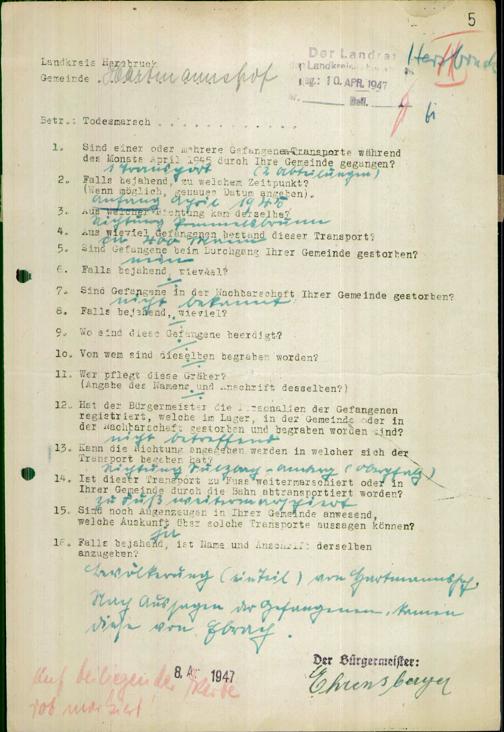 5
Landkreis Hersbruck
Gemeinde Hartmannshof
Der Landrat
10. APR. 1947
Hersbruck
Betr.: Todesmarsch . . . . . . . . . . . .
1. Sind einer oder mehrere Gefangenen-Transporte während
des Monats April 1945 durch Ihre Gemeinde gegangen?
1 Transport (2 Abteilungen)
2. Falls bejahend, zu welchem Zeitpunkt?
(Wenn möglich, genaues Datum angeben).
Anfang April 1945
3. Aus welcher Richtung kam derselbe?
Richtung Pommelsbrunn
4. Aus wieviel Gefangenen bestand dieser Transport?
ca 400 Mann
5. Sind Gefangene beim Durchgang Ihrer Gemeinde gestorben?
nein
6. Falls bejahend, wieviel?
7. Sind Gefangene in der Nachbarschaft Ihrer Gemeinde gestorben?
nicht bekannt
8. Falls bejahend, wieviel?
9. Wo sind diese Gefangene beerdigt?
10. Von wem sind dieselben begraben worden?
11. Wer pflegt diese Gräber?
(Angabe des Namens und Anschrift desselben?)
12. Hat der Bürgermeister die Personalien der Gefangenen
registriert, welche im Lager, in der Gemeinde oder in
der Nachbarschaft gestorben und begraben worden sind?
nicht betreffend
13. Kann die Richtung angegeben werden in welcher sich der
Transport begeben hat?
Richtung Sulzbach-Amberg (Oberpfalz)
14. Ist dieser Transport zu Fuss weitermarschiert oder in
Ihrer Gemeinde durch die Bahn abtransportiert worden?
zu Fuß weitermarschiert
15. Sind noch Augenzeugen in Ihrer Gemeinde anwesend,
welche Auskunft über solche Transporte aussagen können?
ja
16. Falls bejahend, ist Name und Anschrift derselben
anzugeben?
Bevölkerung (einteil) von Hartmannshof.
Nach Aussagen der Gefangenen, kamen
diese von Ebrach.
8. A 1947
Der Bürgermeister:
Ehrensberger
Auf beiliegender
rot markiert